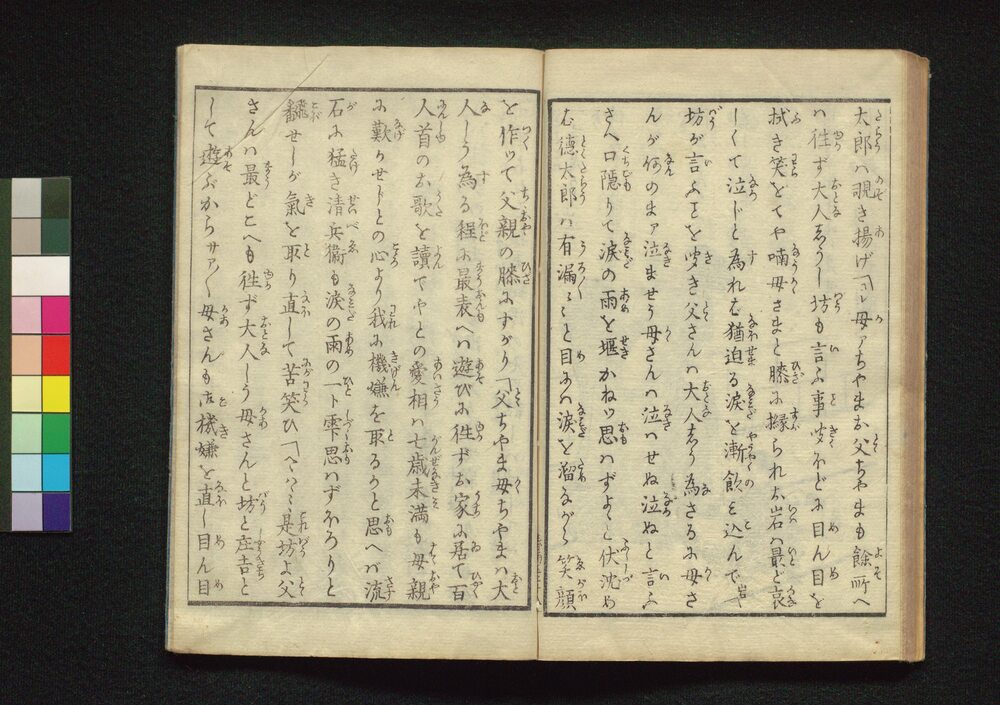 太郎ハ覗き揚げ「コレ母アちやまお父ちやまも餘所へ
ハ徃ず大人志うし坊も言ふ事聞ふどに目ん目を
拭き笑とてや喃母さまと膝に縁られお岩ハ最ど哀
しくて泣じと為れむ猶迫る涙を漸飲と込んで岩
坊が言ふことを聞き父さんハ大人志う為さるに母さ
んが何のまア泣ませう母さんハ泣ハせぬ泣ぬと言ふ
さへ口隠りて涙の雨を堰かねツ思ハずよゝと伏沈め
む徳太郎ハ有漏〳〵と目にハ涙を溜ながら笑顔
を作ツて父親の膝にすがり「父ちやま母ちやまハ大
人しう為る程に最表へハ遊びに徃ずお家に居て百
人首のお歌を讀でやとの愛相ハ七歳未満も母親
に歎かせじとの心より我に機嫌を取るかと思へバ流
石に猛き清兵衞も涙の雨の一ト雫思ハずほろりと
飜せしが氣を取り直して苦笑ひ「へゝハゝゝ是坊よ父
さんハ最どこへも徃ず大人しう母さんと坊と庄吉と
して遊ぶからサア〳〵母さんも御機嫌を直し目ん目